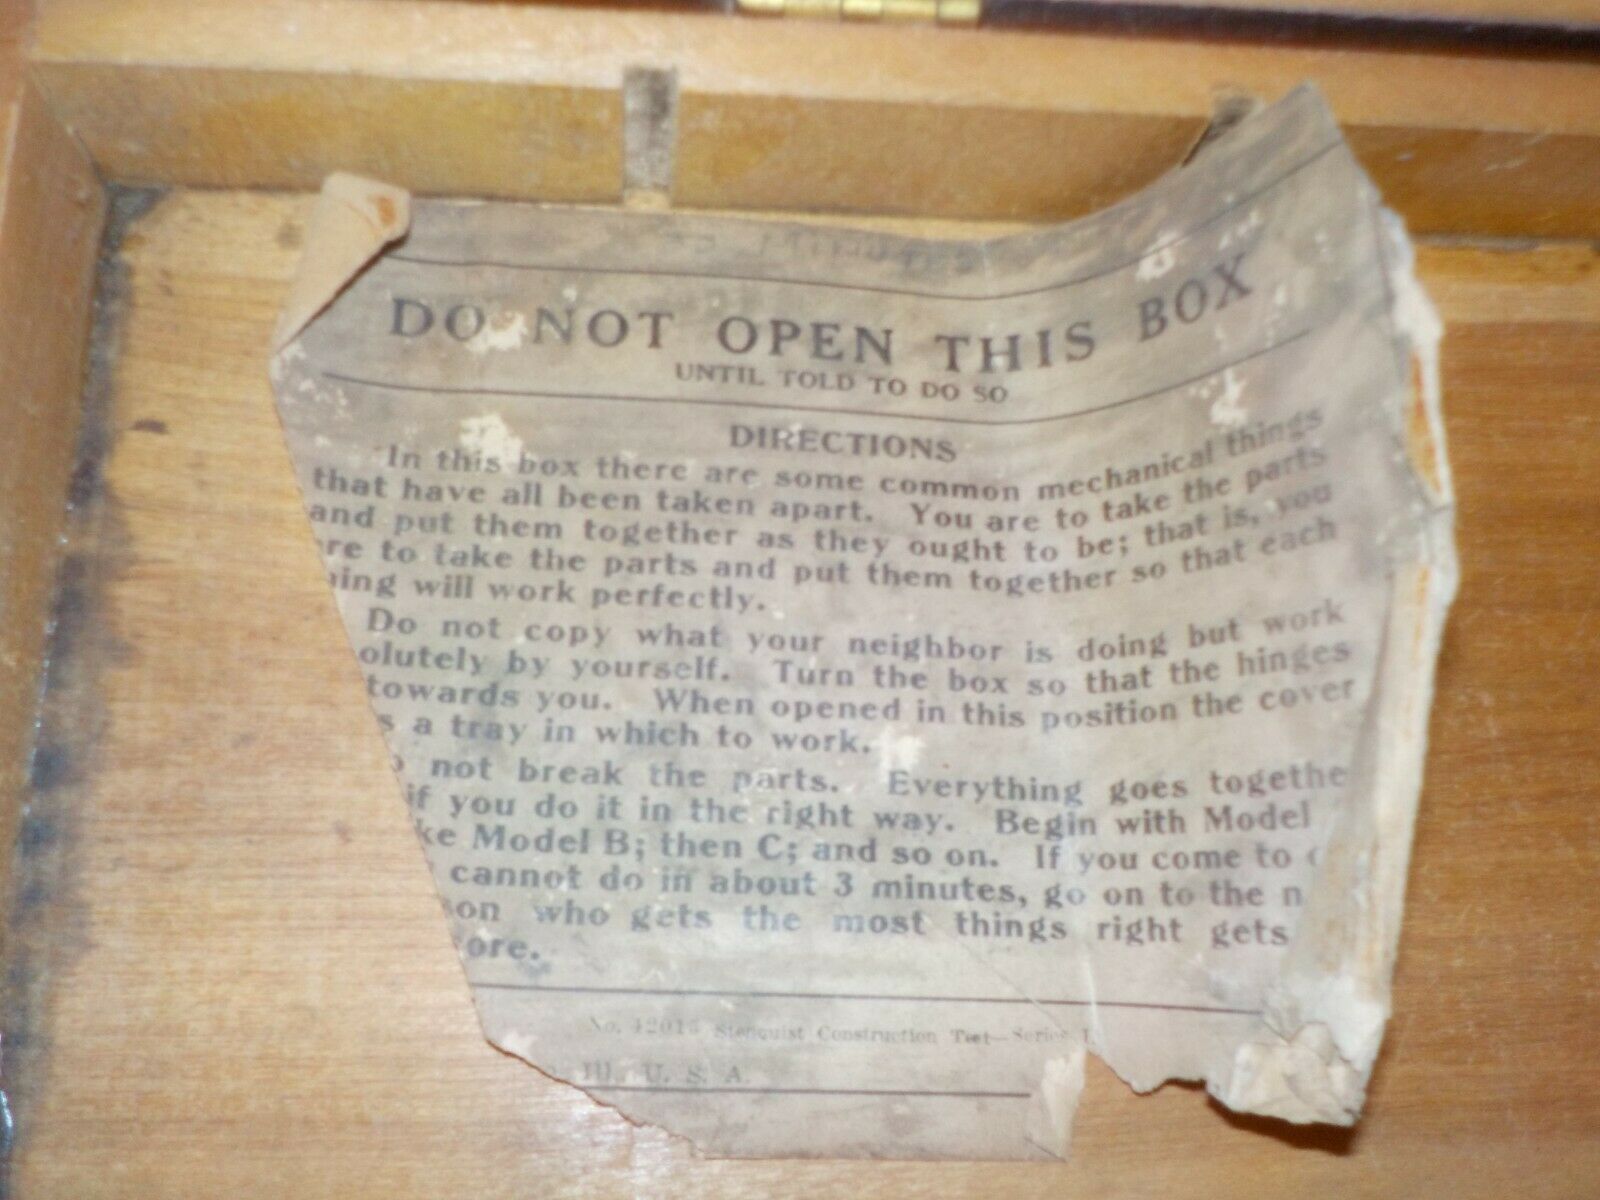 DO NOT OPEN THIS BOX
UNTIL TOLD TO DO SO
DIRECTIONS
In this box there are some common mechanical things
that have all been taken apart. You are to take the parts
and put them together as they ought to be; that is, you
re to take the parts and put them together so that each
ing will work perfectly.
Do not copy what your neighbor is doing but work
olutely by yourself. Turn the box so that the hinges
towards you. When opened in this position the cover
s a tray in which to work.
o not break the parts. Everything goes togethe
if you do it in the right way. Begin with Model
ke Model B; then C; and so on. If you come to
cannot do in about 3 minutes, go on to the n
son who gets the most things right gets
ore.
No. 42015 Stenquist Construction Test—Series
Ill., U. S. A.